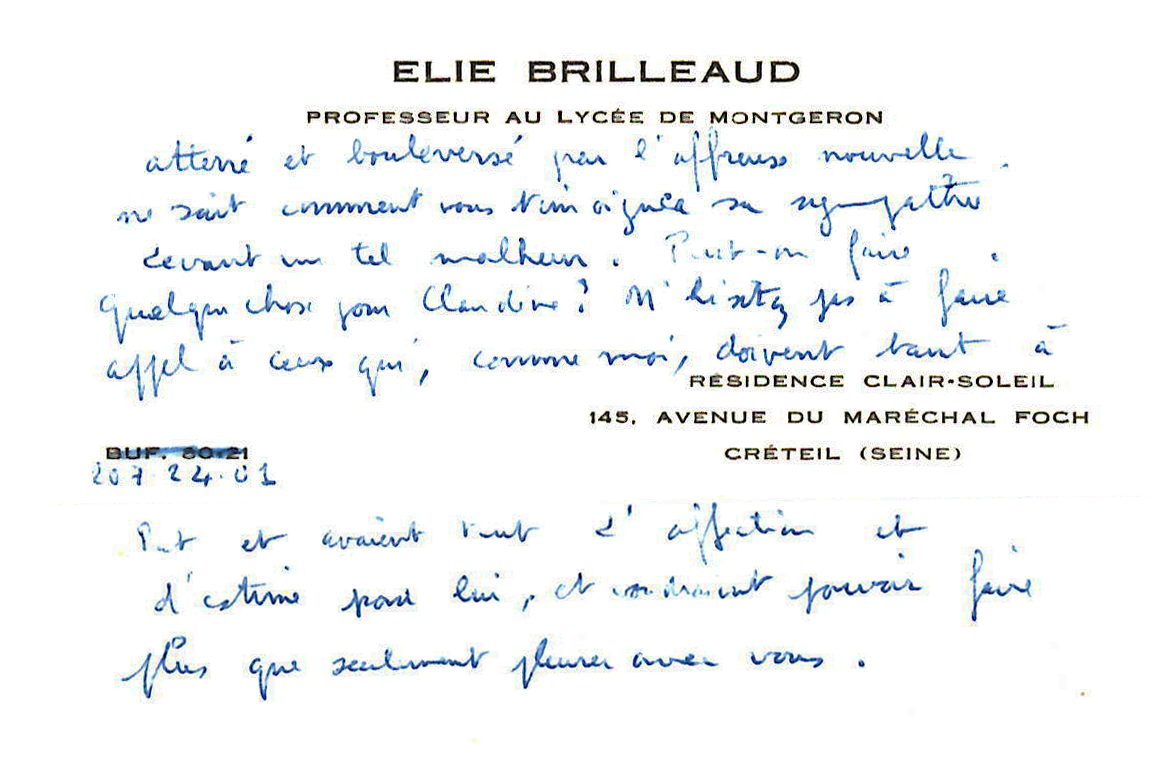 ELIE BRILLEAUD
PROFESSEUR AU LYCÉE DE MONTGERON
atterré et bouleversé par l'affreuse nouvelle
ne sait comment vous témoigner sa sympathie
devant un tel malheur. Peut-on faire
quelque chose pour Claudine? N'hésitez pas à faire
appel à ceux qui, comme moi, doivent tant à
RÉSIDENCE CLAIR-SOLEIL
145, AVENUE DU MARÉCHAL FOCH
BUF. 80-21 CRÉTEIL (SEINE)
207.24.01
et avaient tant d'affection et
d'estime pour lui, et voudraient pouvoir faire
plus que seulement pleurer avec vous.